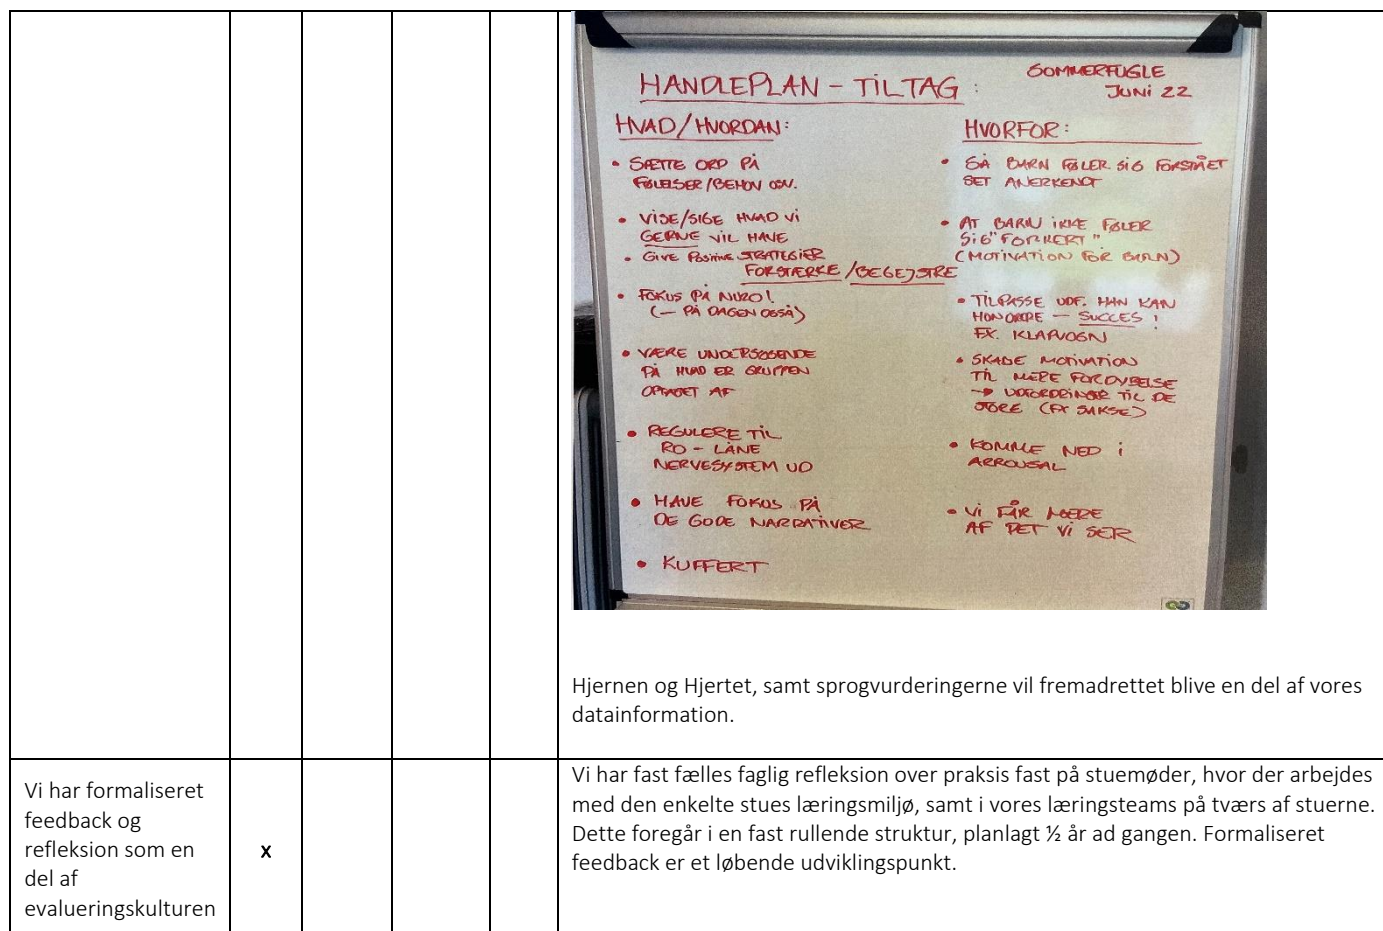 HANDLEPLAN - TILTAG :
SOMMERFUGLE
JUNI 22
HVAD/HVORDAN:
• SÆTTE ORD PÅ
FØLELSER/BEHOV OSV.
• VISE/SIGE HVAD VI
GERNE VIL HAVE
• GIVE POSITIVE STRATEGIER
FORSTÆRKE/BEGEJSTRE
• FOKUS PÅ NUZO!
(– PÅ DAGEN OGSÅ)
• VÆRE UNDERSØGENDE
PÅ HVAD ER GRUPPEN
OPTAGET AF
• REGULERE TIL
RO - LÅNE
NERVESYSTEM UD
• HAVE FOKUS PÅ
DE GODE NARRATIVER
• KUFFERT
HVORFOR:
• SÅ BARN FØLER SIG FORSTÅET
SET ANERKENDT
• AT BARN IKKE FØLER
SIG "FORKERT"
(MOTIVATION FOR BARN)
• TILPASSE UDF. HAN KAN
HONORERE – SUCCES!
FX. KLAPVOGN
• SKABE MOTIVATION
TIL MERE FORDYBELSE
→ UDFORDRINGER TIL DE
STORE (FX SAKSE)
• KOMME NED I
ARROUSAL
• VI FÅR MERE
AF DET VI SER
Hjernen og Hjertet, samt sprogvurderingerne vil fremadrettet blive en del af vores
datainformation.
Vi har formaliseret
feedback og
refleksion som en
del af
evalueringskulturen
x
Vi har fast fælles faglig refleksion over praksis fast på stuemøder, hvor der arbejdes
med den enkelte stues læringsmiljø, samt i vores læringsteams på tværs af stuerne.
Dette foregår i en fast rullende struktur, planlagt ½ år ad gangen. Formaliseret
feedback er et løbende udviklingspunkt.